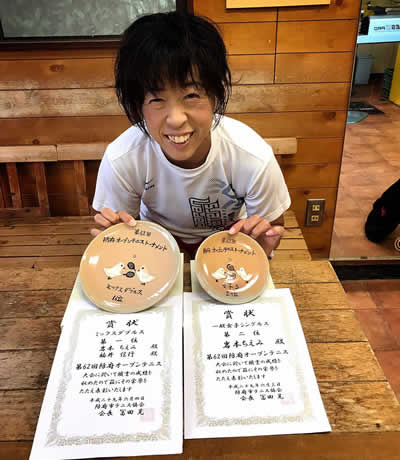 第62回
防府オープンテニストーナメント
ミックスダブルス
1位
第62回
防府オープンテニストーナメント
賞状
ミックスダブルス
第一位
岩本ちえみ 殿
福井信行 殿
第62回防府オープンテニス
大会に於いて頭書の成績を
収めたので茲にその栄誉を
たたえ表彰いたします
平成二十九年六月四日
防府市テニス協会
会長 冨田 晃
賞状
一般女子シングルス
第二位
岩本ちえみ 殿
第62回防府オープンテニス
大会に於いて頭書の成績を
収めたので茲にその栄誉を
たたえ表彰いたします
防府市テニス協会
会長 冨田 晃